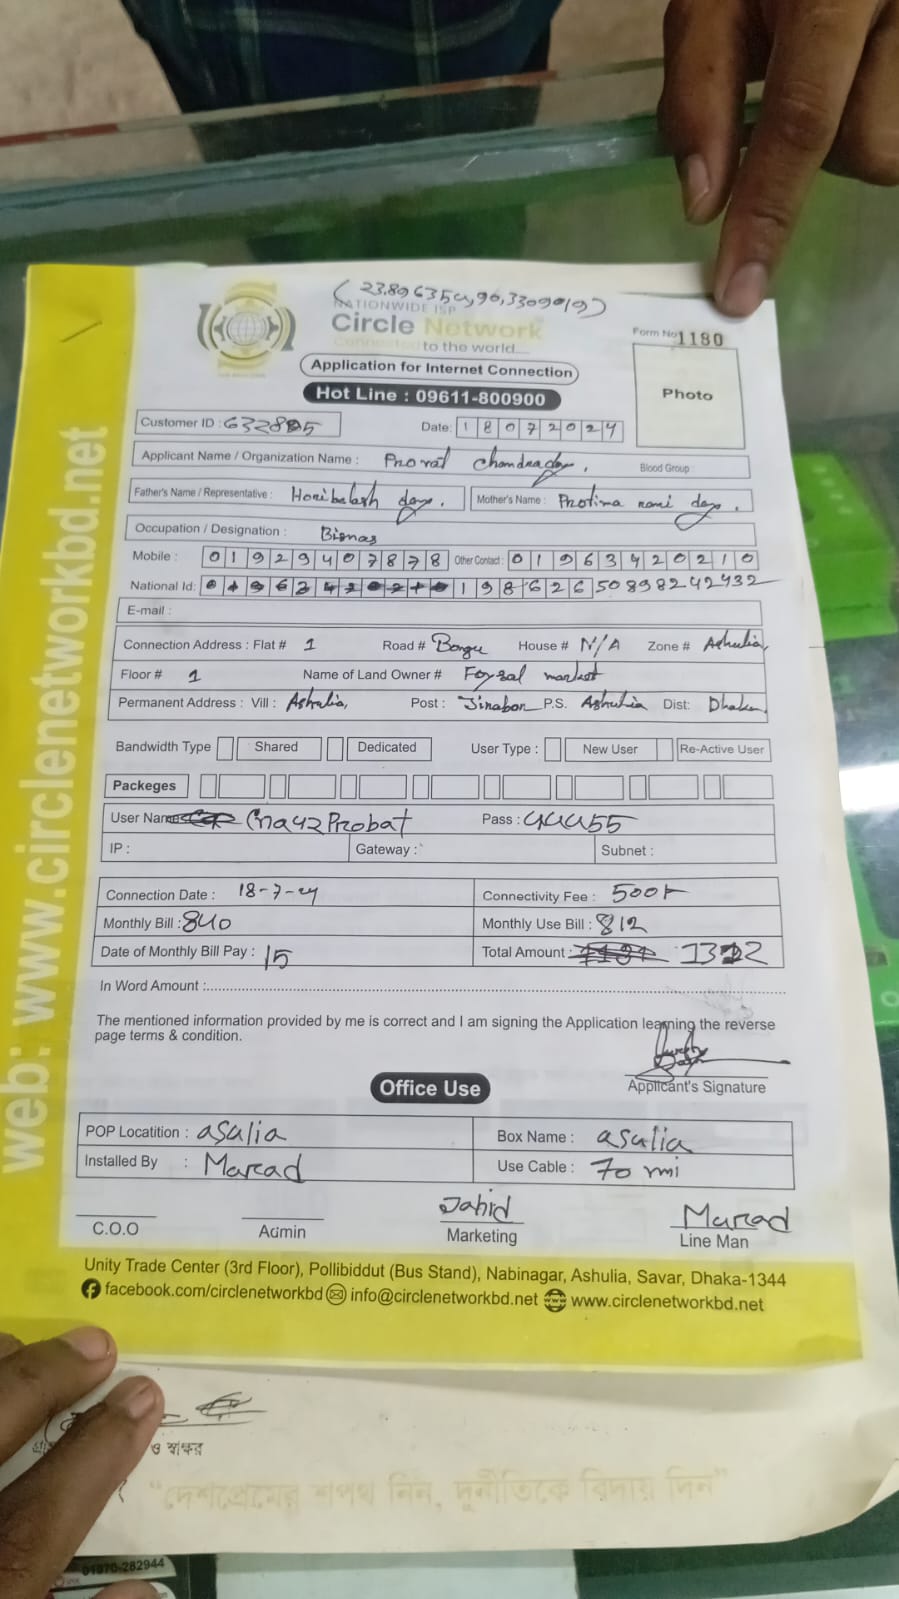 (23.896350,90.3309019)
NATIONWIDE ISP
Circle Network
Connected to the world....
Form No 1180
Application for Internet Connection
Photo
Hot Line : 09611-800900
Customer ID : 632885 Date: 18072024
Applicant Name / Organization Name : Provat Chandra das. Blood Group :
Father's Name / Representative : Horibalash das. Mother's Name : Protima rani das.
Occupation / Designation :
Mobile : 01929407878 Other Contact : 01963420210
National Id: 19862650898242432
E-mail :
Connection Address : Flat # 1 Road # House # N/A Zone # Ashulia,
Floor # 1 Name of Land Owner # Foysal market
Permanent Address : Vill : Ashulia, Post : Jirabon P.S. Ashulia Dist: Dhaka.
Bandwidth Type Shared Dedicated User Type : New User Re-Active User
Packeges
User Name Pass : 44455
IP : Gateway : Subnet :
Connection Date : 18-7-24 Connectivity Fee : 500
Monthly Bill : 840 Monthly Use Bill : 812
Date of Monthly Bill Pay : 15 Total Amount : 1312
In Word Amount :
The mentioned information provided by me is correct and I am signing the Application learning the reverse
page terms & condition.
Applicant's Signature
Office Use
POP Locatition : asulia Box Name : asulia
Installed By : Marcad Use Cable : 70 mi
Jahid Marcad
C.O.O Admin Marketing Line Man
Unity Trade Center (3rd Floor), Pollibiddut (Bus Stand), Nabinagar, Ashulia, Savar, Dhaka-1344
facebook.com/circlenetworkbd info@circlenetworkbd.net www.circlenetworkbd.net
web: www.circlenetworkbd.net
ও স্বাক্ষর
“দেশপ্রেমের শপথ নিন, দুর্নীতিকে বিদায় দিন”
01970-282944